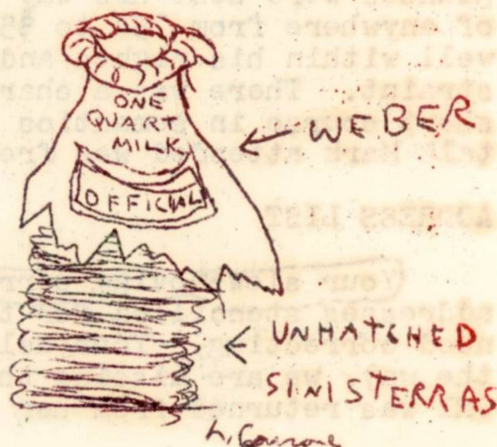 ONE
QUART
MILK
OFFICIAL
← WEBER
< UNHATCHED
SINISTERRAS